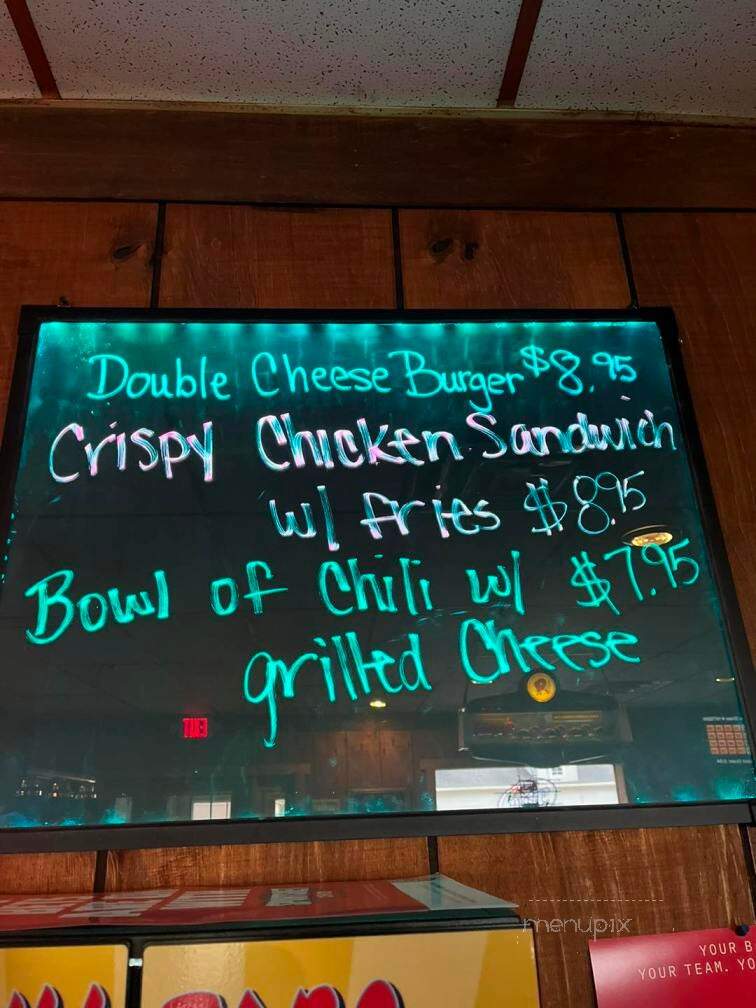 Double Cheese Burger $8.95
Crispy Chicken Sandwich
w/ fries $8.95
Bowl of Chili w/ $7.95
grilled Cheese
EXIT
menupix
YOUR B
YOUR TEAM. YO